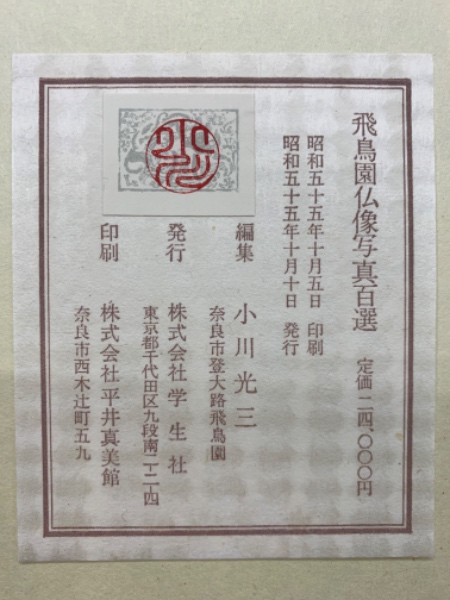 飛鳥園仏像写真百選 定価 二四、〇〇〇円
昭和五十五年十月五日 印刷
昭和五十五年十月十日 発行
編集 小川光三
奈良市登大路飛鳥園
発行 株式会社学生社
東京都千代田区九段南二ー二ー四
印刷 株式会社平井真美館
奈良市西木辻町五九